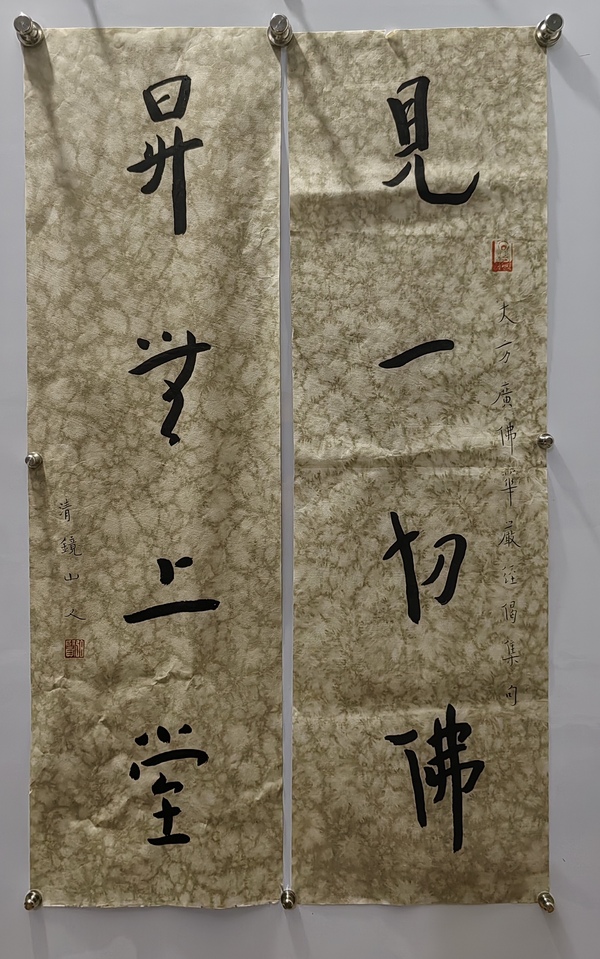 見一切佛
大方廣佛華嚴經偈集句
昇無上堂
清鏡山人